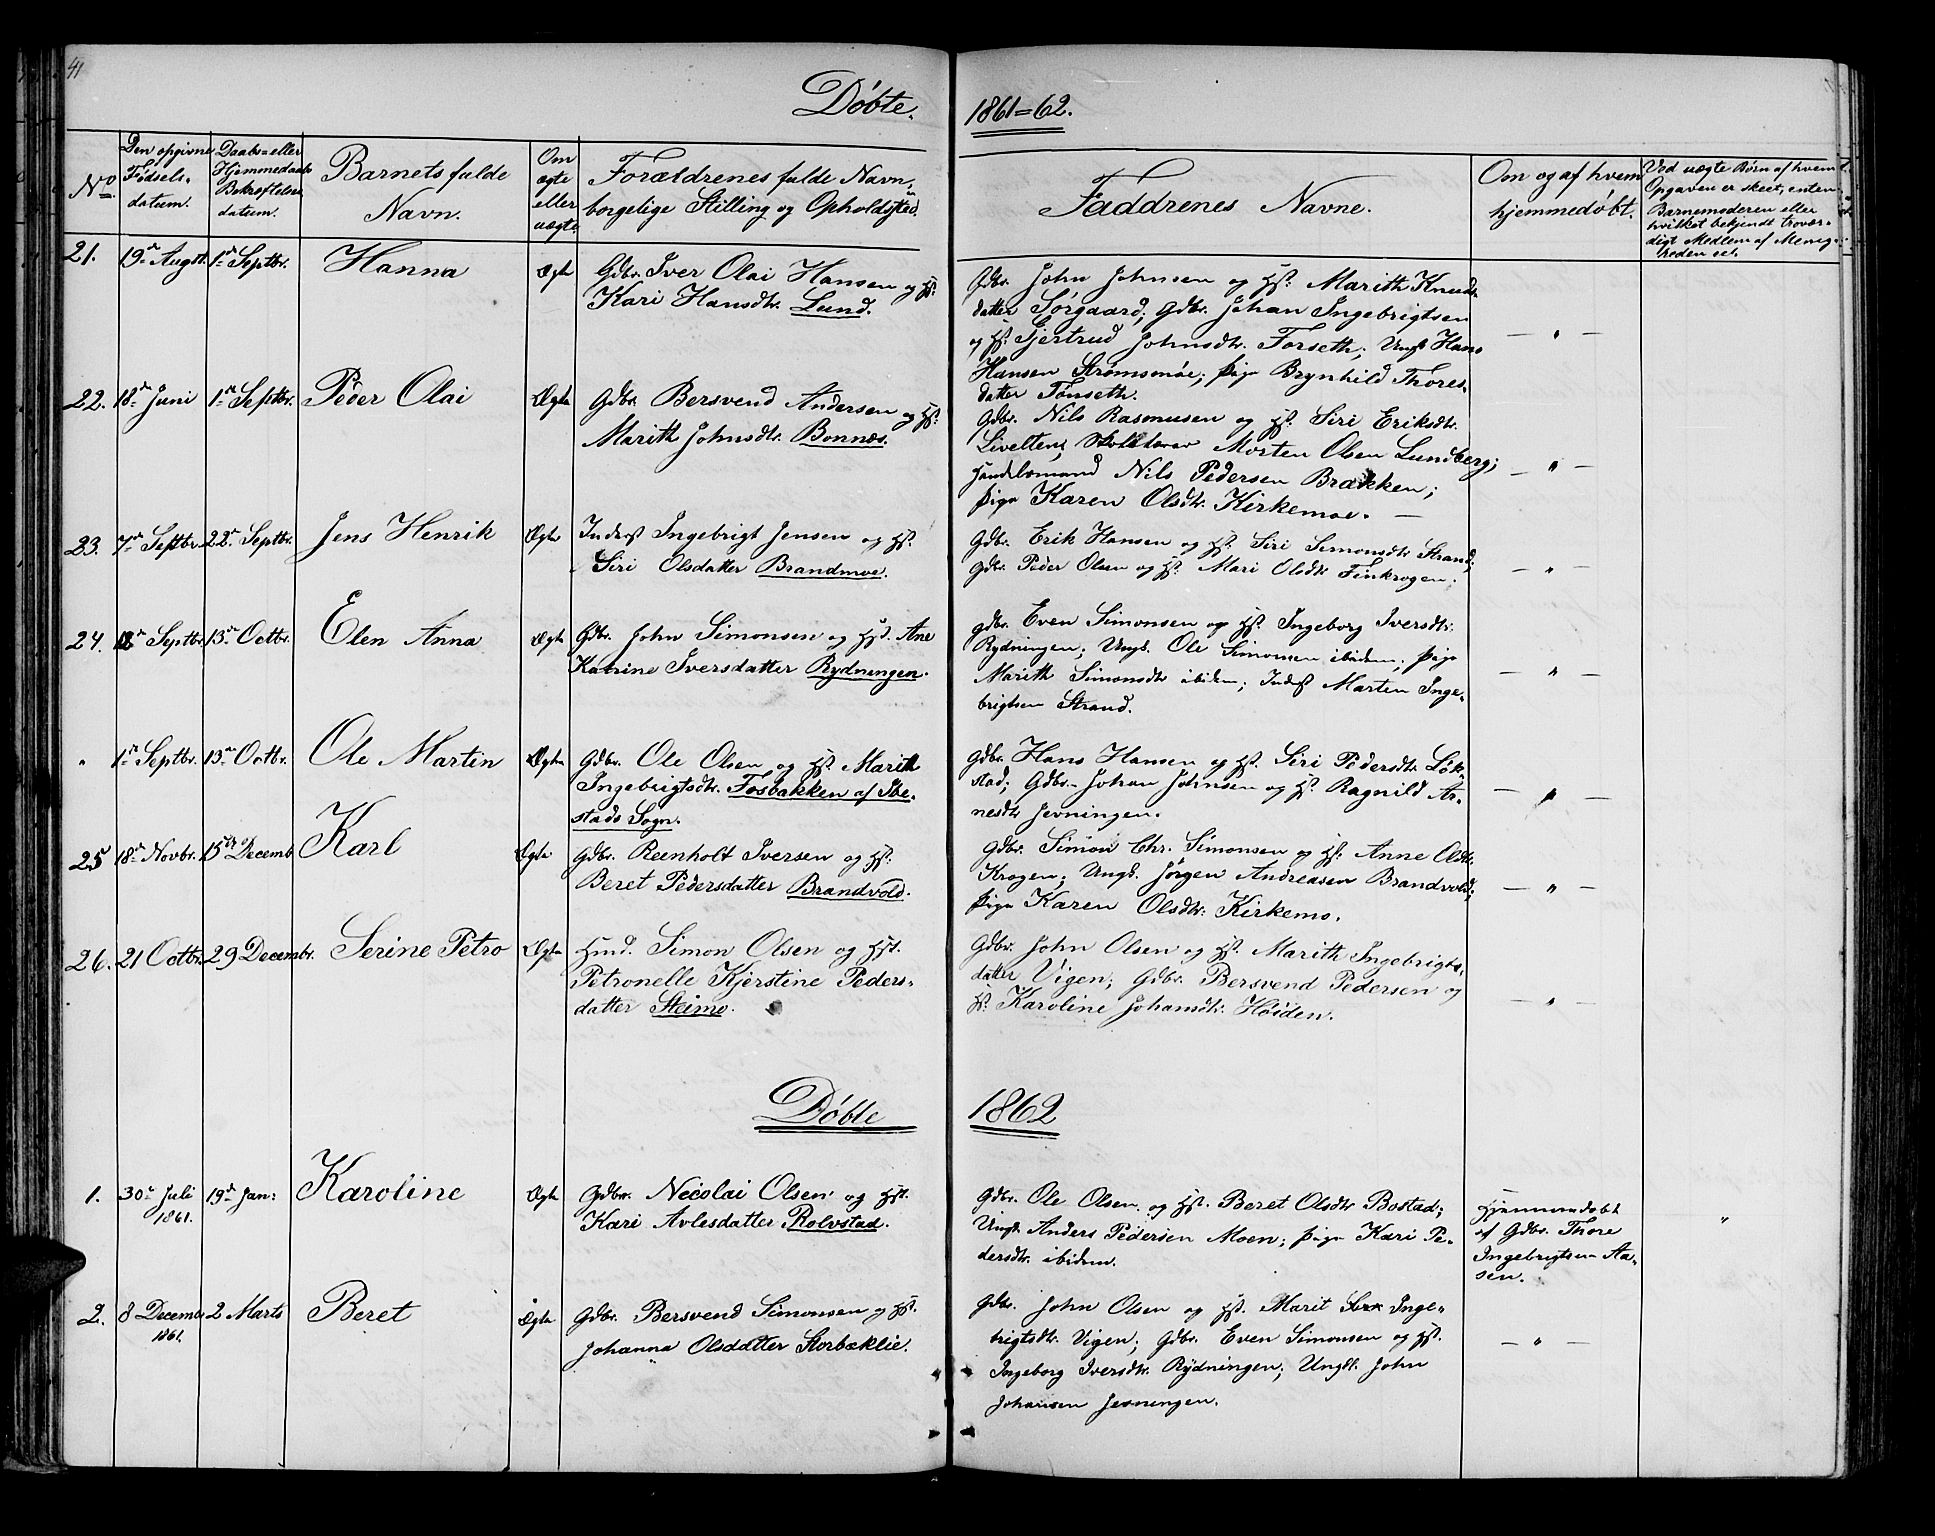 41
Døbte.
1861=62.
No.
Den opgivne
Fødsels-
datum.
Daabs- eller
Hjemmedaabs
Bekræftelses
datum.
Barnets fulde
Navn.
Om
ægte
eller
uægte
Forældrenes fulde Navn,
borgelige Stilling og Opholdsted.
Faddrenes Navne.
Om og af hvem
hjemmedøbt.
Ved uægte Børn af hvem
Opgaven er skeet, enten
Barnemoderen eller
hvilket bekjendt trovær-
digt Medlem af Menig-
heden el.
21. 19de Augst. 1ste Septbr. Hanna Ægte
Gdbr. Iver Olai Hansen og Hst:
Kari Hansdtr. Lund.
Gdbr. John Johnsen og Hst: Marith Knuds-
datter Sørgaard; Gdbr. Johan Ingebrigtsen
og Hst: Gjertrud Johnsdtr. Forseth; Ungk Hans
Hansen Strømsmøe; Pige Brynhild Thores-
datter Tønseth.
— " —
22. 18de Juni 1ste Septbr. Peder Olai Ægte
Gdbr. Bersvend Andersen og Hst:
Marith Johnsdtr. Bonnæs.
Gdbr. Nils Rasmusen og Hst. Siri Eriksdtr.
Livelten; Skolelærer Morten Olsen Lundberg;
Handelsmand Nils Pedersen Brækken;
Pige Karen Olsdtr. Kirkemoe. —
— " —
23. 7de Septbr. 22de Septbr. Jens Henrik Ægte
Inderst Ingebrigt Jensen og Hst.
Siri Olsdatter Brandmoe.
Gdbr. Erik Hansen og Hst. Siri Simonsdtr Strand;
Gdbr Peder Olsen og Hst: Mari Olsdtr Finkrogen;
— " —
24. 12te Septbr. 13de Octbr. Elen Anna Ægte
Gdbr. John Simonsen og Hst. Ane
Katrine Iversdatter Rydningen.
gdbr. Even Simonsen og Hst. Ingeborg Iversdtr.
Rydningen; Ungk. Ole Simonsen ibidem; Pige
Marith Simonsdtr ibidem; Inderst Marten Inge-
brigtsen Strand.
— " —
" 1ste Septbr. 13de Octbr. Ole Martin Ægte
Gdbr. Ole Olsen og Hst. Marith
Ingebrigtsdtr. Fosbakken af Ibe-
stads Sogn.
Gdbr. Hans Hansen og Hst. Siri Pedersdtr Løk-
stad; Gdbr. Johan Johnsen og Hst. Ragnild Ar-
nesdtr Jevningen.
— " —
25 18de Novbr. 15de Decemb Karl Ægte
Gdbr. Reenholt Iversen og Hst.
Beret Pedersdatter Brandvold.
Gdbr. Simon Chr. Simonsen og Hst. Anne Olsdtr.
Krogen; Ungk. Jørgen Andreasen Brandvold;
Pige Karen Olsdtr. Kirkemo.
— " —
26. 21 Octbr. 29 Decembr. Serine Petro Ægte
Hmd. Simon Olsen og Hst.
Petronelle Kjerstine Peders-
datter Steimo.
Gdbr. John Olsen og Hst. Marith Ingebrigts-
datter Vigen; Gdbr. Bersvend Pedersen og
Hst. Karoline Johansdtr. Høiden.
— " —
Døbte
1862
1. 30te Juli 19de Jan: Karoline Ægte
1861.
Gdbr. Necolai Olsen og Hst.
Kari Avlesdatter Rolvstad.
Gdbr. Ole Olsen og Hst. Beret Olsdtr Bostad;
Ungk. Anders Pedersen Moen; Pige Kari Pe-
dersdtr. ibidem.
Hjemmedøbt
af Gdbr. Thore
Ingebrigtsen Aa-
sen.
"
2. 8 Decembr 2 Marts Beret Ægte
1861.
Gdbr. Bersvend Simonsen og Hst.
Johanna Olsdatter Storbæklie.
Gdbr. John Olsen og Hst. Marit Inge-
brigtsdtr. Vigen; Gdbr. Even Simonsen og Hst.
Ingeborg Iversdtr. Rydningen; Ungk. John
Johansen Jevningen.
— " —